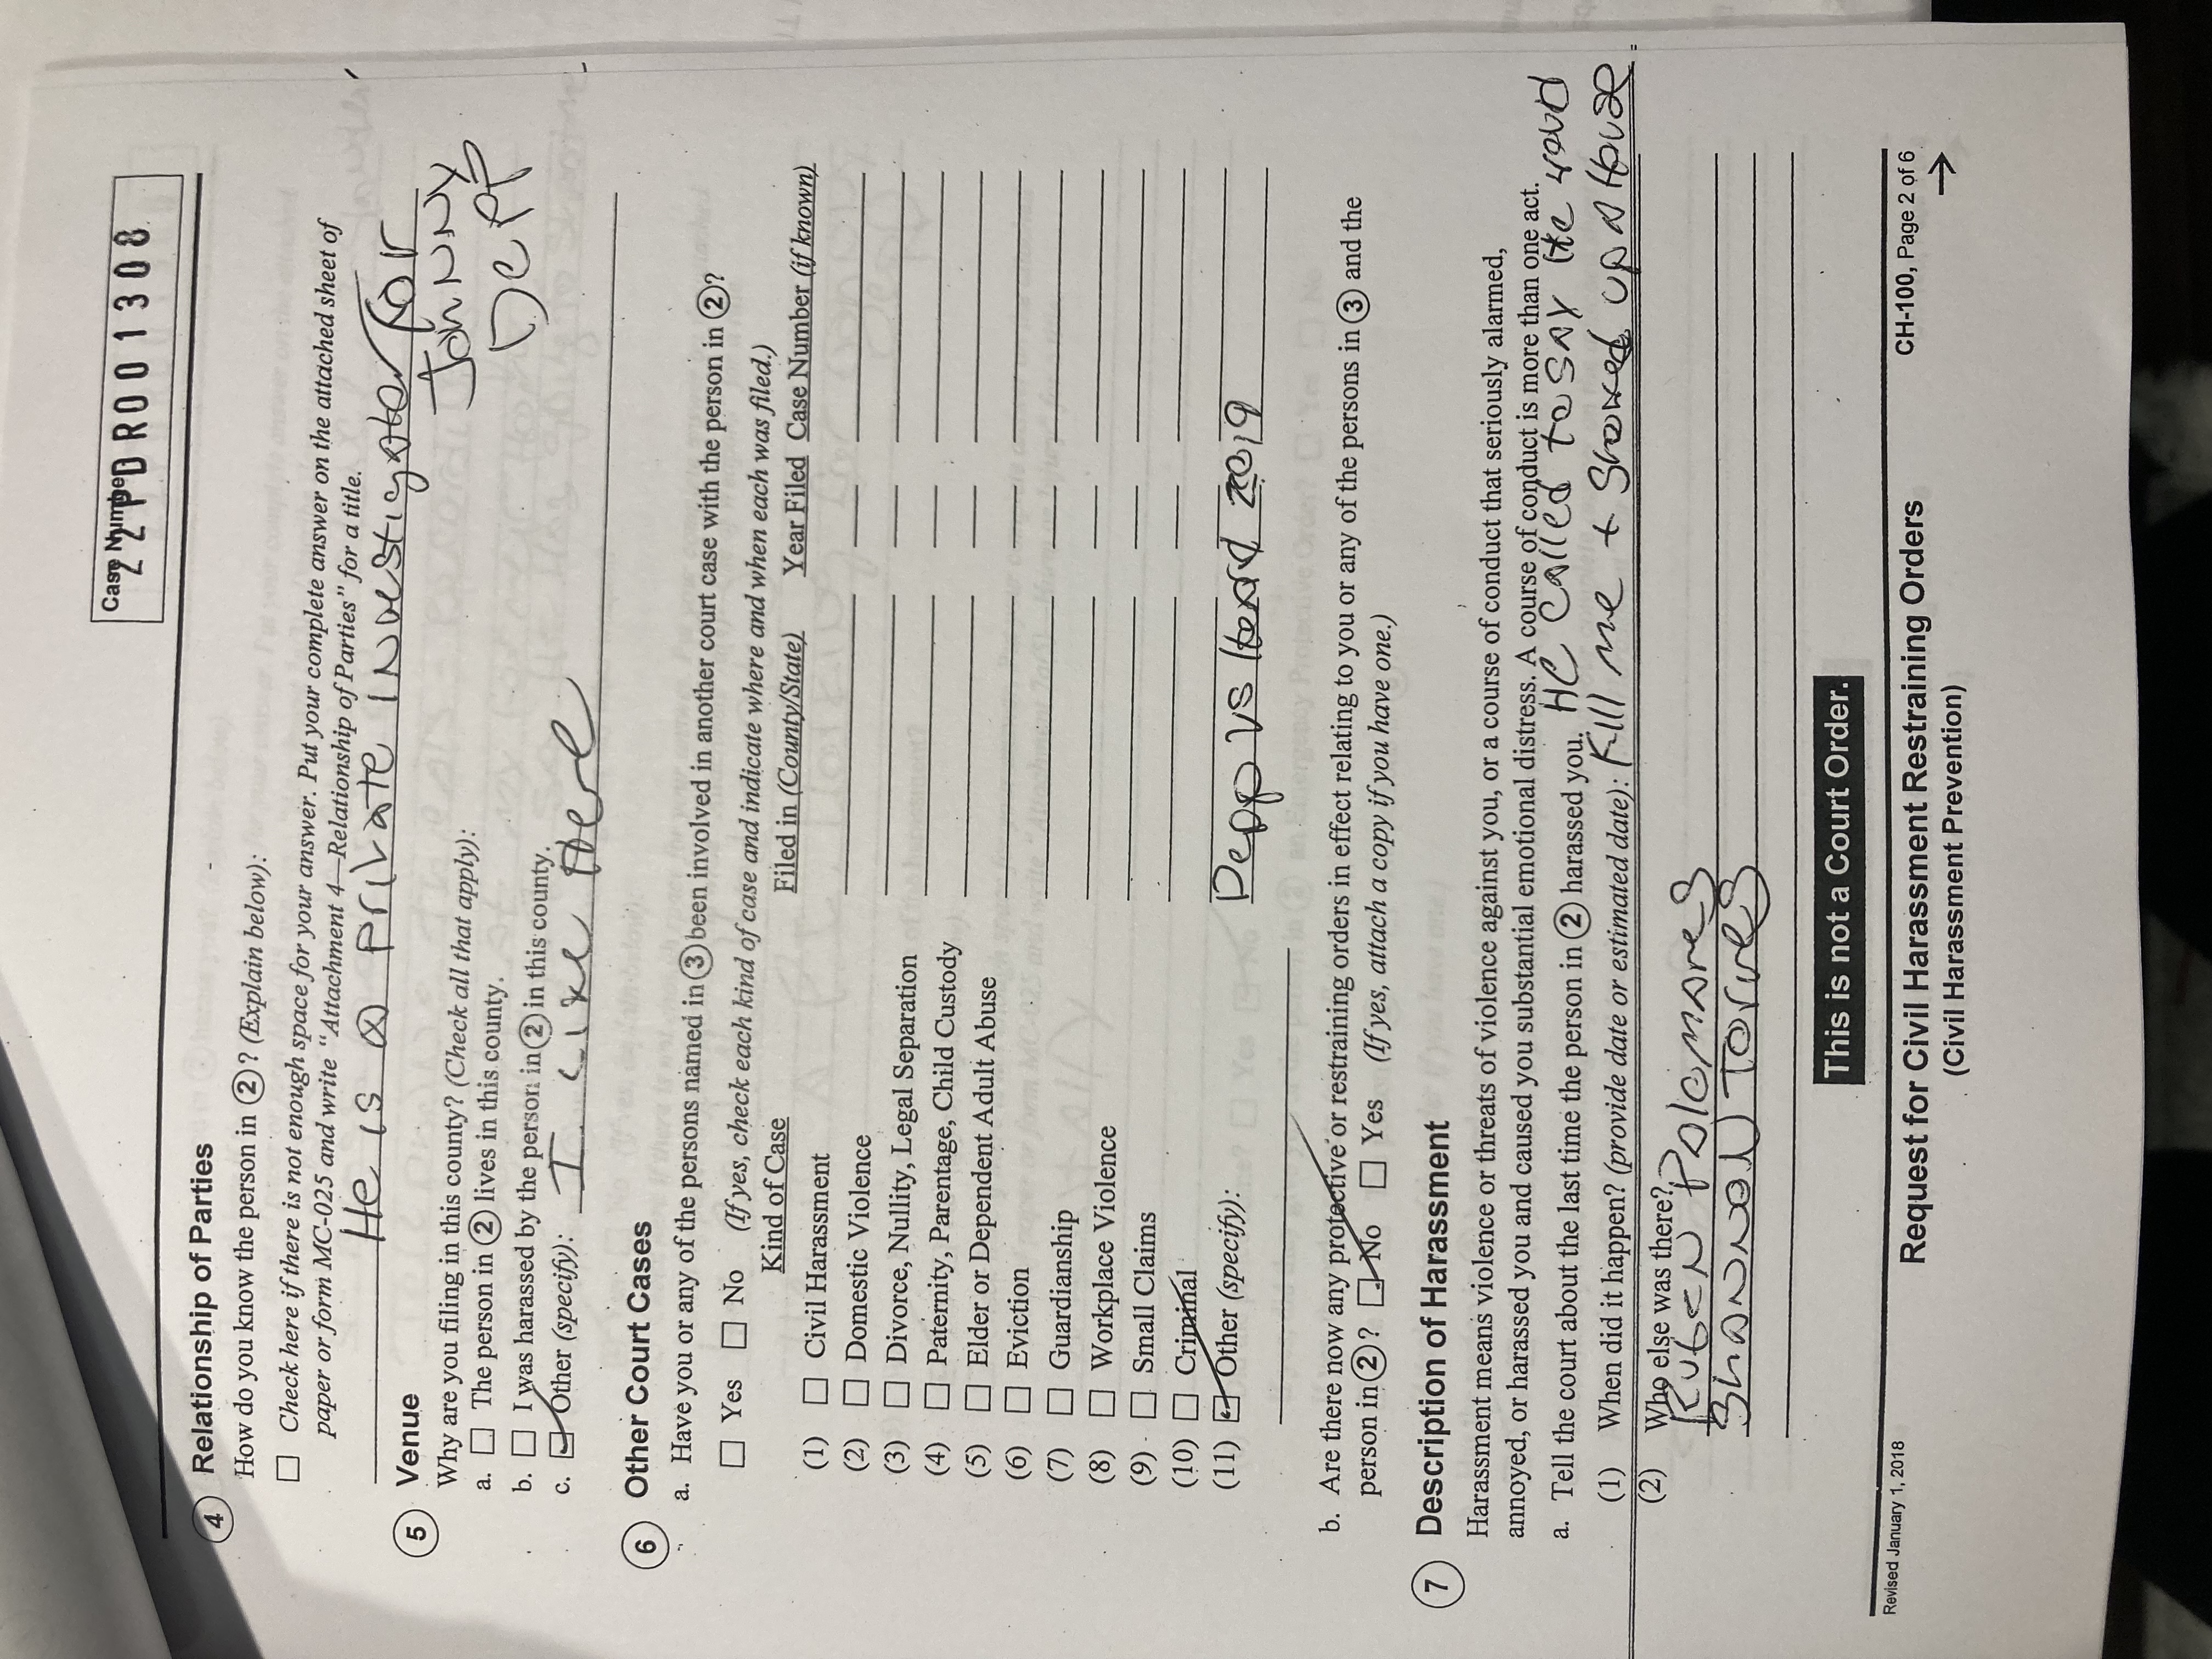 Case Number
22PDR001308
4 Relationship of Parties
How do you know the person in 2? (Explain below):
Check here if there is not enough space for your answer. Put your complete answer on the attached sheet of
paper or form MC-025 and write “Attachment 4—Relationship of Parties” for a title.
He is a private investigator for
Johnny
Depp
5 Venue
Why are you filing in this county? (Check all that apply):
a. The person in 2 lives in this county.
b. I was harassed by the person in 2 in this county.
c. Other (specify): I Live Here
6 Other Court Cases
a. Have you or any of the persons named in 3 been involved in another court case with the person in 2?
Yes No (If yes, check each kind of case and indicate where and when each was filed.)
Kind of Case Filed in (County/State) Year Filed Case Number (if known)
(1) Civil Harassment
(2) Domestic Violence
(3) Divorce, Nullity, Legal Separation
(4) Paternity, Parentage, Child Custody
(5) Elder or Dependent Adult Abuse
(6) Eviction
(7) Guardianship
(8) Workplace Violence
(9) Small Claims
(10) Criminal
(11) Other (specify): Depp vs Heard 2019
b. Are there now any protective or restraining orders in effect relating to you or any of the persons in 3 and the
person in 2? No Yes (If yes, attach a copy if you have one.)
7 Description of Harassment
Harassment means violence or threats of violence against you, or a course of conduct that seriously alarmed,
annoyed, or harassed you and caused you substantial emotional distress. A course of conduct is more than one act.
a. Tell the court about the last time the person in 2 harassed you. He called to say He
(1) When did it happen? (provide date or estimated date): Kill me + Showed up House
(2) Who else was there?
Ruben Palomares
Shannon Torres
This is not a Court Order.
Revised January 1, 2018
Request for Civil Harassment Restraining Orders
(Civil Harassment Prevention)
CH-100, Page 2 of 6
→